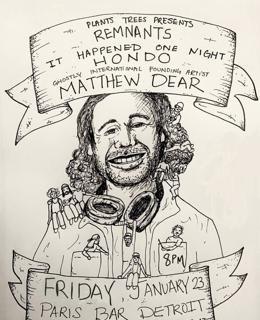 PLANTS TREES PRESENTS
REMNANTS
IT HAPPENED ONE NIGHT
HONDO
GHOSTLY INTERNATIONAL FOUNDING ARTIST
MATTHEW DEAR
8PM
FRIDAY, JANUARY 23
PARIS BAR DETROIT